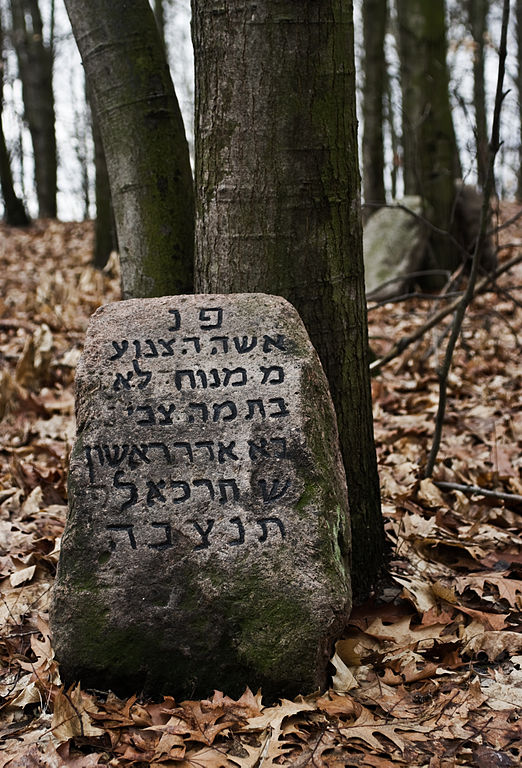 פנ
אשה הצנוע
מ מנוח לא
בת מה צבי
רא אדר ראשון
ש תרכא ל
תנצבה